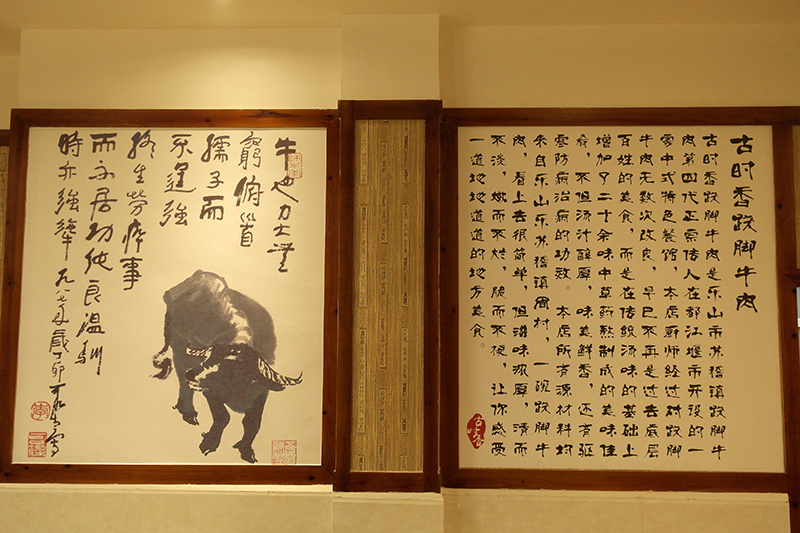 牛也力大無
窮俯首
孺子而
不逞強
終生勞瘁事
而不居功純良溫馴
時亦強犟 九八七年歲丁卯可染寫
古时香跷脚牛肉
古时香跷脚牛肉是乐山市苏稽镇跷脚牛
肉第四代正宗传人在都江堰市开设的一
家中式特色餐馆，本店厨师经过对跷脚
牛肉无数次改良，早已不再是过去底层
百姓的美食，而是在传统汤味的基础上
增加了二十余味中草药熬制成的美味佳
肴，不但汤汁醇厚，味美鲜香，还有驱
寒防病治病的功效。本店所有源材料均
来自乐山乐苏稽镇周村，一碗跷脚牛
肉，看上去很简单，但滋味浓厚，清而
不淡，嫩而不烂，脆而不硬，让你感受
一道地地道道的地方美食。
古时香